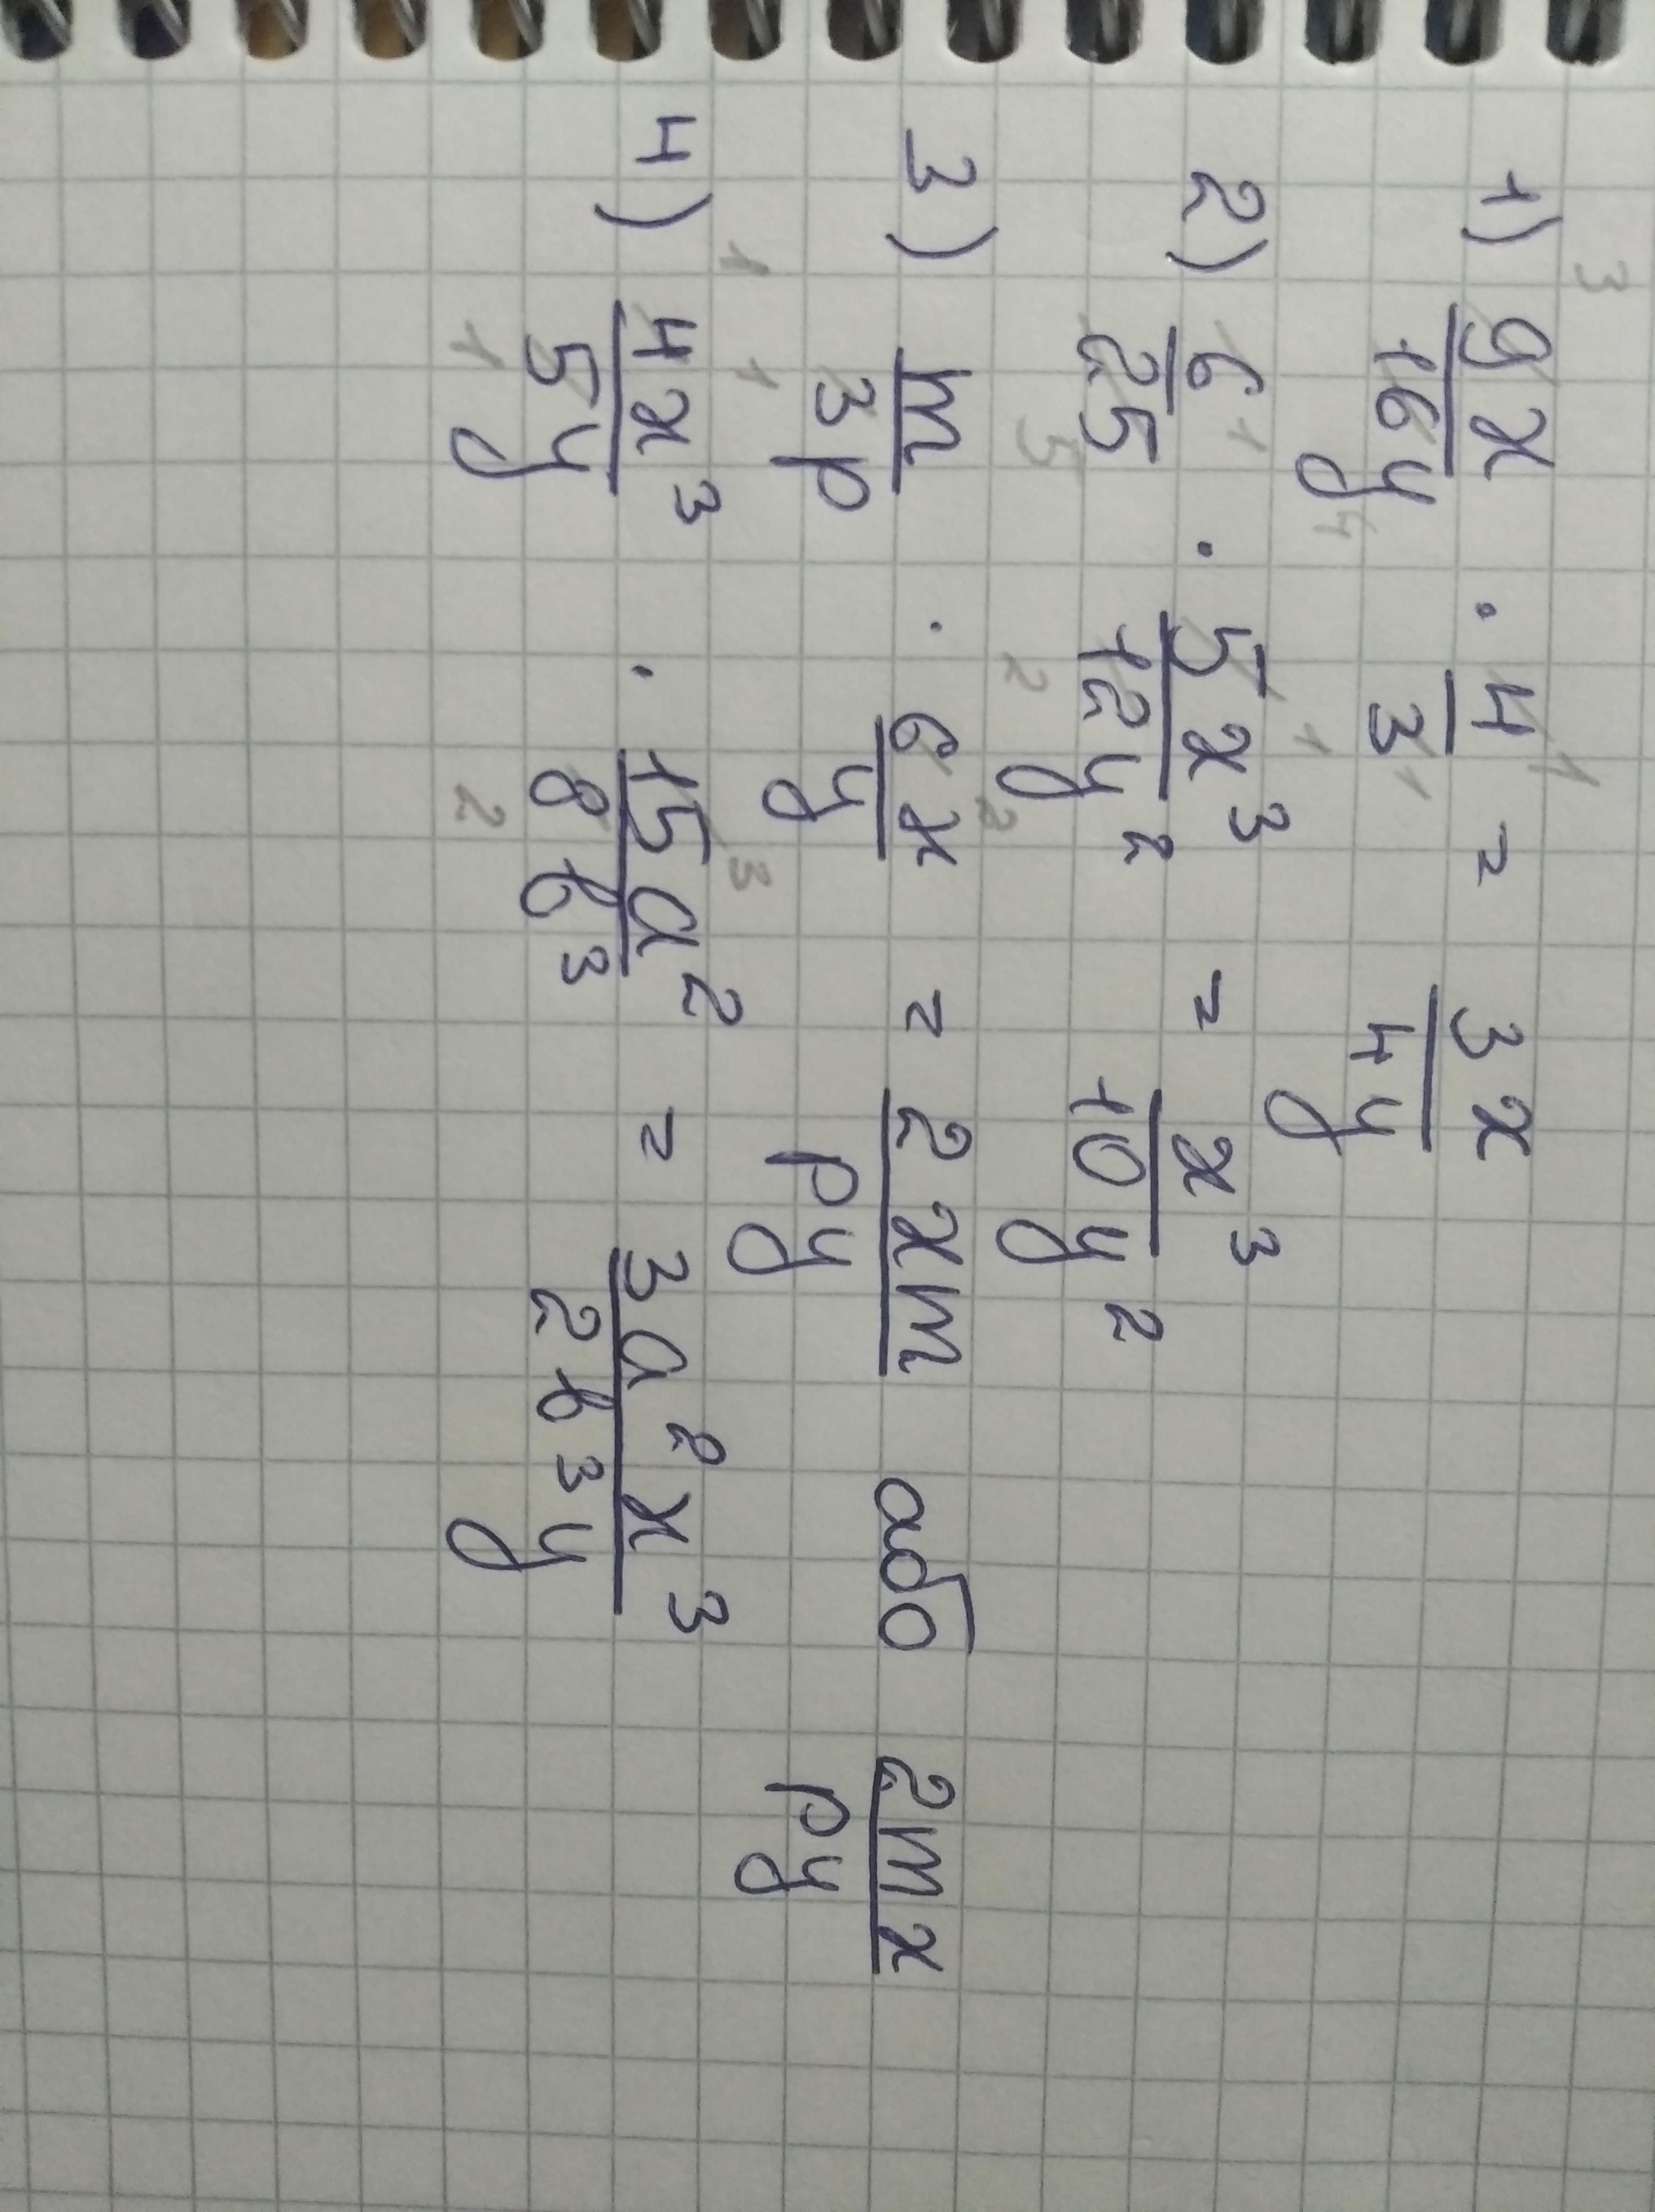 1) 9x/16y · 4/3 = 3x/4y
2) 6/25 · 5x³/12y² = x³/10y²
3) m/3p · 6x/y = 2xm/py або 2mx/py
4) 4x³/5y · 15a²/8b³ = 3a²x³/2b³y